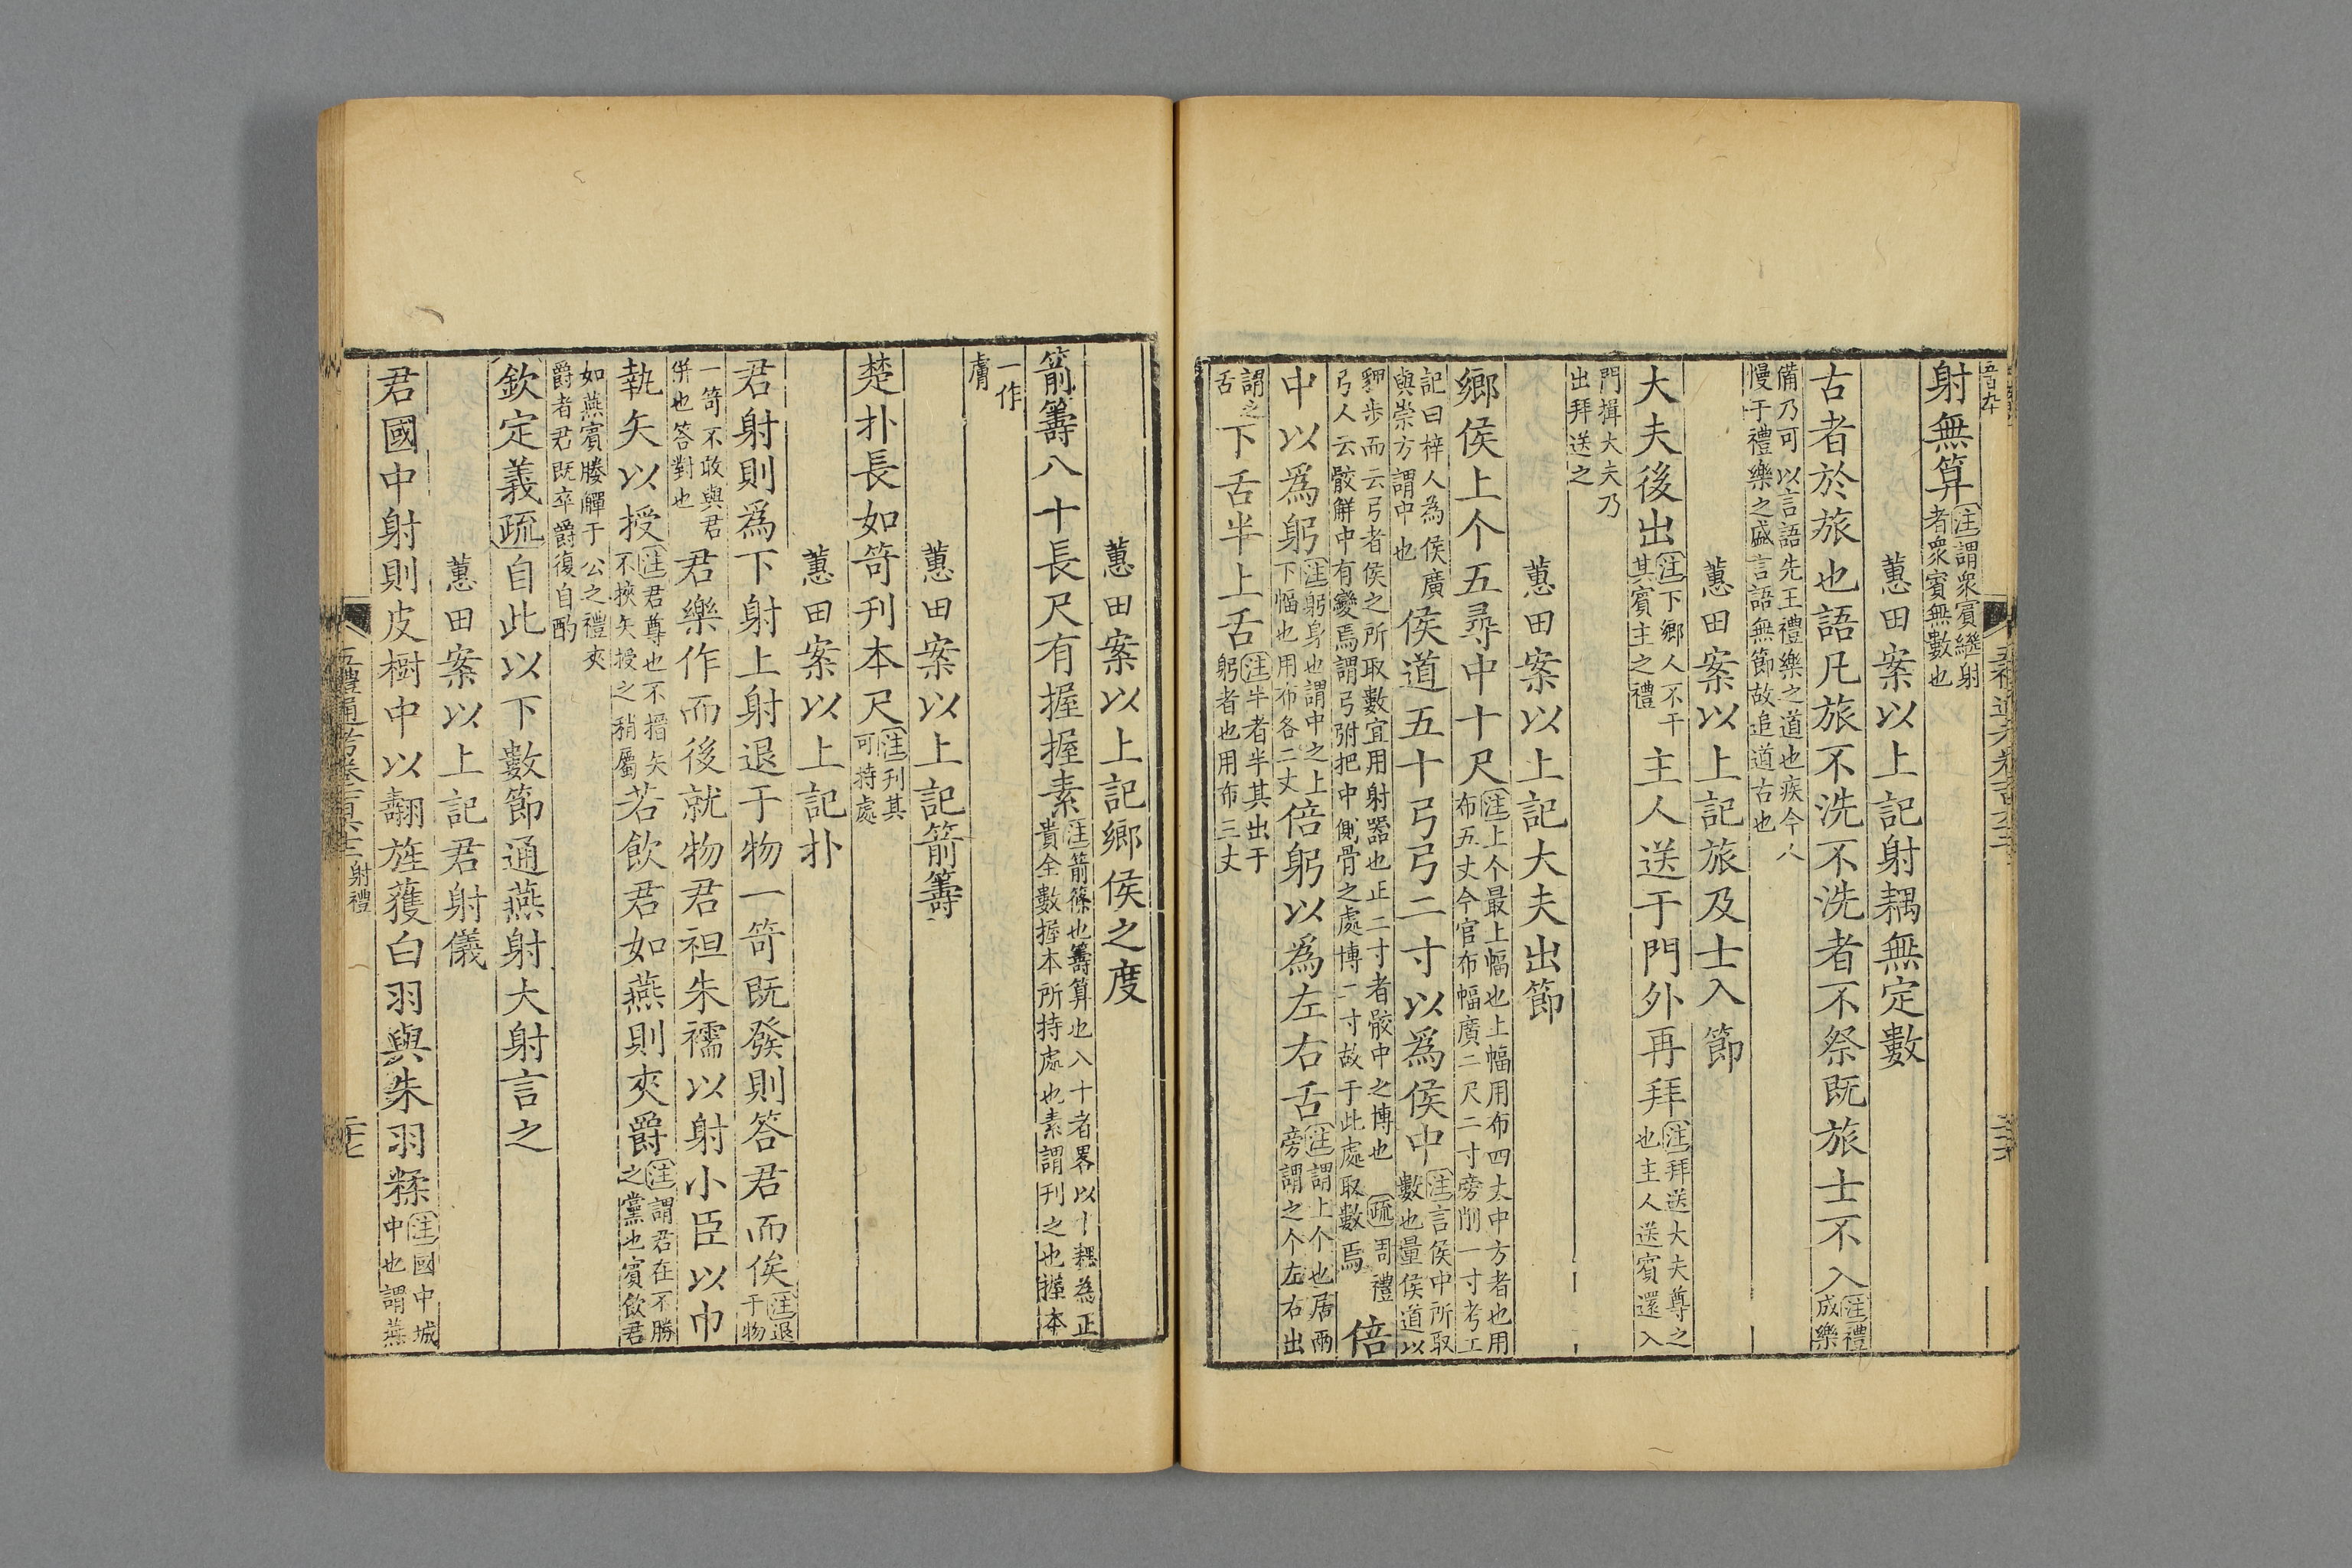 射無算注謂衆賓繼射者衆賓無數也
蕙田案以上記射耦無定數
古者於旅也語凡旅不洗不洗者不祭既旅士不入注禮成樂
備乃可以言語先王禮樂之道也疾今人慢于禮樂之盛言語無節故追道古也
蕙田案以上記旅及士入節
大夫後出注下鄉人不干其賓主之禮主人送于門外再拜注拜送大夫尊之也主人送賓還入
門揖大夫乃出拜送之
蕙田案以上記大夫出節
鄉侯上个五尋中十尺注上个最上幅也上幅用布四丈中方者也用布五丈今官布幅廣二尺二寸旁削一寸考工
記曰梓人為侯廣與崇方謂中也侯道五十弓弓二寸以爲侯中注言侯中所取數也量侯道以
貍步而云弓者侯之所取數宜用射器也正二寸者骹中之博也疏周禮弓人云骹解中有變焉謂弓弣把中側骨之處博二寸故于此處取數焉倍
中以爲躬注躬身也謂中之上下幅也用布各二丈倍躬以爲左右舌注謂上个也居兩旁謂之个左右出
謂之舌下舌半上舌注半者半其出于躬者也用布三丈
蕙田案以上記鄉侯之度
箭籌八十長尺有握握素注箭篠也籌算也八十者畧以十耦為正貴全數握本所持處也素謂刊之也握本
一作膚
蕙田案以上記箭籌
楚扑長如笴刊本尺注刊其可持處
蕙田案以上記扑
君射則爲下射上射退于物一笴既發則答君而俟注退于物
一笴不敢與君併也答對也君樂作而後就物君袒朱襦以射小臣以巾
執矢以授注君尊也不搢矢不挾矢授之稍屬若飲君如燕則夾爵注謂君在不勝之黨也賓飲君
如燕賓媵觶于公之禮夾爵者君既卒爵復自酌
欽定義疏自此以下數節通燕射大射言之
蕙田案以上記君射儀
君國中射則皮樹中以翿旌獲白羽與朱羽糅注國中城中也謂燕
射禮